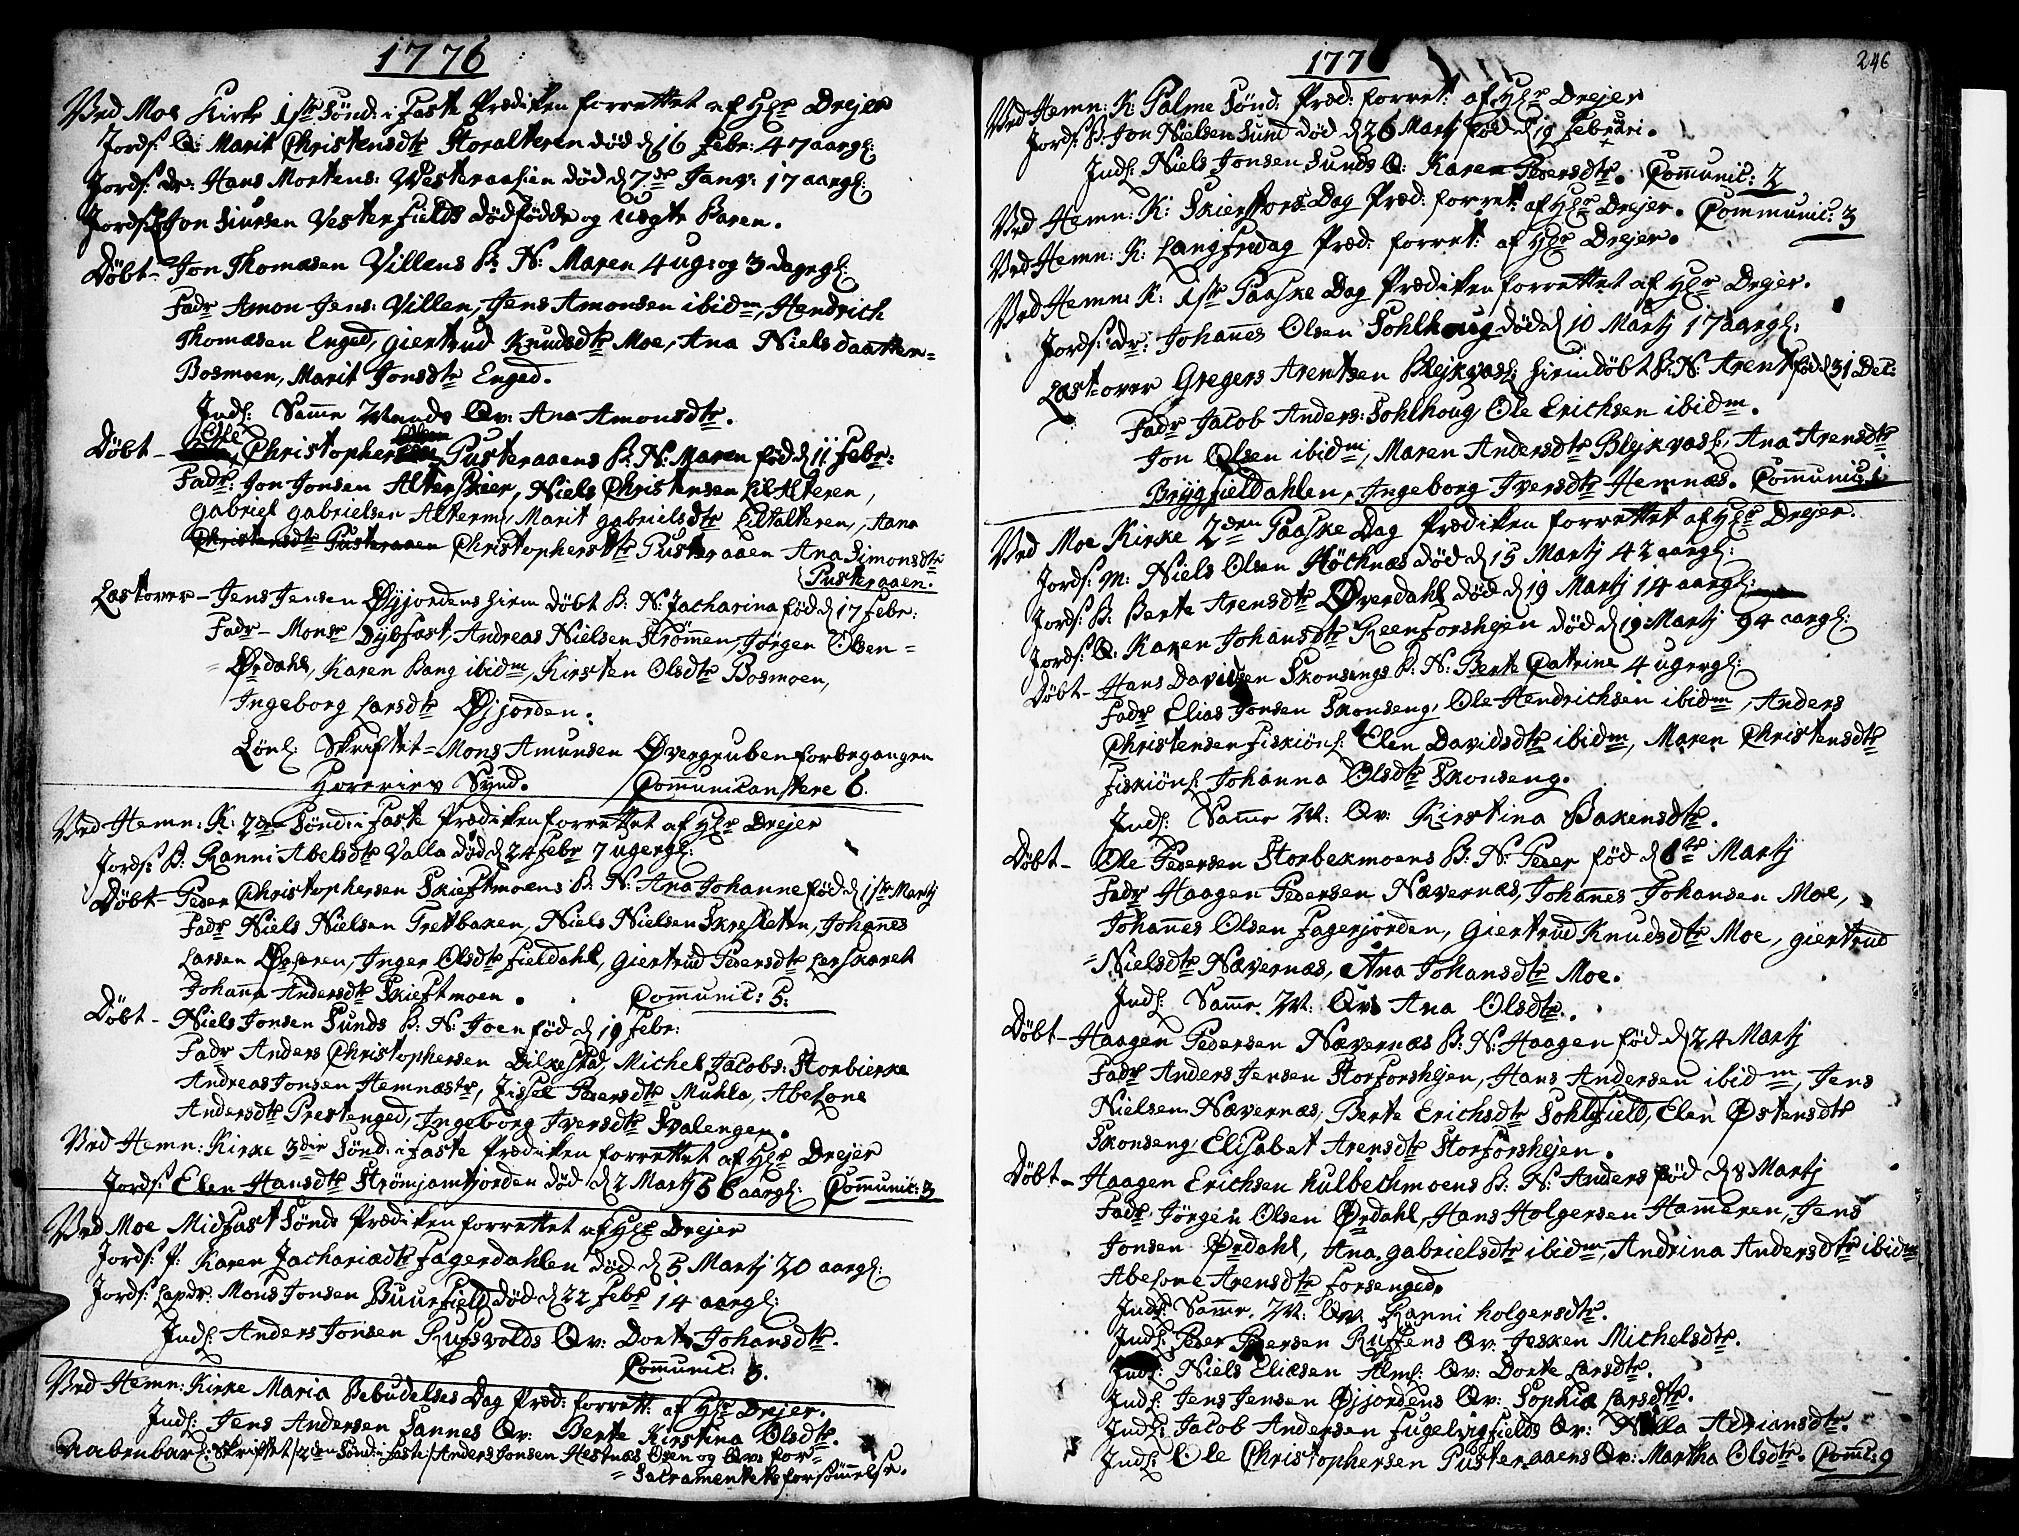 1776
Ved Moe Kirke 1ste Sønd: i Faste Prædiken forrettet af Hr: Drejer
Jords: Q: Marit Christensdtr Storalteren død d 16 Febr: 47 aargl:
Jords: Dr: Hans Mortens: Westeraalien død d 7de Janv: 17 aargl:
Jords: Jon Siursen Vesterfields dødfødde og uegte Baren.
Døbt - Jon Thomæsen Villæns B: N: Maren 4 ug: og 3 dagegl:
Fadr Amon Jens: Villen, Jens Amonsen ibidm, Hendrich
Thomæsen Enged, Giertrud Knudsdtr Moe, Ana Nielsdaatter
Bosmoen, Marit Jonsdtr Enged.
Indl: Samme Mands Qv: Ana Amonsdtr.
Døbt - Ole Christophersen Pusteraaens B: N: Maren fød d 11 Febr:
Fadr: Jon Jonsen Alterskeer, Niels Christensen Lilalteren,
Gabriel Gabrielsen Alterm, Marit Gabrielsdtr Liltalteren, Aana
Christensdtr Pusteraaen Christophersdtr Pusteraaen Ana Simonsdtr
Pusteraaen.
Læst over - Jens Jensen Øyjordens hiem døbt B: N: Zacharina fød d 17 Febr:
Fadr - Monsr Dybfast, Andreas Nielsen Strømmen, Jørgen Olsen
Ørdahl, Karen Bang ibidm, Kirsten Olsdtr Bosmoen,
Ingeborg Larsdtr Øjjorden.
Lønl: Skriftet = Mons Amunsen Øvergruben for begangen
Horeries Synd. Communicantere 6.
Ved Hemn: K: 2den Sønd: i Faste Prædiken forrettet af Hr Drejer
Jords: B: Ranni Abelsdtr Valla død d 24 Febr 7 ugergl:
Døbt - Peder Christophersen Skieftmoens B: N: Ana Johanne fød d 1ste Martj
Fadr Niels Nielsen Tretbaken, Niels Nielsen Skresletten, Johanes
Larsen Øveren, Inger Olsdtr Fieldahl, Giertrud Pedersdtr Larskaret
Johanna Andersdtr Skieftmoen. Communic: 5.
Døbt - Niels Jonsen Sunds B: N: Joen fød d 19 Febr:
Fadr Anders Christophersen Dilkestad, Michel Jacobs: Storbierke
Andreas Jonsen Hemnæstr, Zissel Pedersdtr Muhla, Abelone
Andersdtr Prestenged, Ingeborg Iversdtr Svalengen.
Ved Hemn: Kirke 3die Sønd: i Faste Prædiken forrettet af Hr Drejer
Jords: Elen Hansdtr Strømjamtjorden død d 2 Martj 56 aargl: Communic: 3
Ved Moe Midfast Sønds Prædiken forrettet af Hr Drejer
Jords: P: Karen Zachariædtr Fagerdahlen død d 5 Martj 20 aargl:
Jords: Lapdr: Mons Jonsen Buurfield død d 22 Febr 14 aargl:
Indl: Anders Jonsen Rufsvolds Qv: Dorte Johansdtr.
Communic: 3.
Ved Hemn: Kirke Maria Bebudelses Dag Præd: forrett: af Hr Drejer.
Indl: Jens Andersen Sannes Qv: Berte Kirstina Olsdtr.
Aabenbarl: Skriftet /2den Sønd: i Faste/ Anders Jonsen Hestnæs Osen og Qv: for
Sacramentets forsømmelse.
246
1776
Ved Hemn: K: Palme Sønd: Præd: forret: af Hr Drejer
Jords: B: Jon Nielsen Sund død d 26 Martj fød d 19 Februari.
Indl: Niels Jonsen Sunds Q: Karen Pedersdtr. Communic: 2
Ved Hemn: K: Skiertors Dag Præd: forret: af Hr Drejer. Communic: 3
Ved Hemn: K: Langfredag Præd: forret: af Hr Drejer.
Ved Hemn: K: 1ste Paaske Dag Prædiken forrettet af Hr Drejer.
Jords: Dr: Johannes Olsen Sohlhoug død d 10 Martj 17 aargl:
Læst over Gregers Arentsen Blejkvasl: hiemdøbt B: N: Arent fød d 31 Dec:
Fadr Jacob Anders: Sohlhoug, Ole Erichsen ibidm.
Jon Olsen ibidm, Maren Andersdtr Blejkvasl:, Ana Arensdtr
Brygfieldahlen, Ingeborg Iversdtr Hemnæs. Communic: 1
Ved Moe Kirke 2den Paaske Dag Prædiken forrettet af Hr Drejer.
Jords: M: Niels Olsen Høthnæs død d 15 Martj 42 aargl:
Jords: B: Berte Arensdtr Øverdahl død d 19 Martj 14 aargl:
Jords: Q: Karen Johansdtr Reenforshejen død d 19 Martj 94 aargl:
Døbt - Hans Davidsen Skonsengs B: N: Berte Catrine 4 ugergl:
Fadr Elias Jonsen Skonseng, Ole Hendrichsen ibidm, Anders
Christensen Fiskiønl: Elen Davidsdtr ibidm, Maren Christensdtr
Fiskiønl: Johanna Olsdtr Skonseng.
Indl: Samme M: Qv: Kirstina Bakensdtr.
Døbt - Ole Pedersen Storbekmoens B: N: Peder fød d 8de Martj
Fadr Haagen Pedersen Nævernæs, Johanes Johansen Moe,
Johannes Olsen Fagerjorden, Giertrud Knudsdtr Moe, Giertrud
Nielsdtr Nævernæs, Ana Johansdtr Moe.
Indl: Samme M: Qv: Ana Olsdtr.
Døbt - Haagen Pedersen Nævernæs B: N: Haagen fød d 24 Martj
Fadr Anders Jensen Storforshejen, Hans Andersen ibidm, Jens
Nielsen Nævernæs, Berte Erichsdtr Sohlfield, Elen Østensdtr
Skonseng, Elisabet Arensdtr Storforshejen.
Døbt - Haagen Erichsen Hulbechmoens B: N: Anders fød d 8 Martj
Fadr Jørgen Olsen Ørdahl, Hans Holgersen Hammeren, Jens
Jonsen Ørdahl, Ana Gabrielsdtr ibidm, Andrina Andersdtr ibidm
Abelone Arensdtr Forsenged.
Indl: Samme M: Qv Ranni Holgersdtr.
Indl: Peder Persen Ruffens Qv: Jesken Michelsdtr.
Indl: Niels Eliæsen Alml: Qv: Dorte Larsdtr.
Indl: Jens Jensen Øjjordens Qv: Sophia Larsdtr.
Indl: Jacob Andersen Fugelvigfields Qv: Nilla Adriansdtr.
Indl: Ole Christophersen Pusteraaens Qv: Martha Olsdtr. Comm: 9